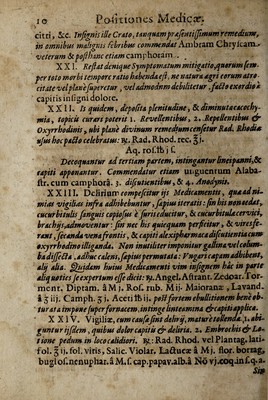 10 Positiones Medicæ.
citri, &c. Insignis ille Crato, tanquam præsentissimum remedium,
in omnibus malignis febribus commendat Ambram Chrysicam.
veterum & posthinc etiam camphoram.
XXI. Restat denique Symptomatum mitigatio, quorum sem-
per toto morbi tempore ratio habenda est, ne natura ægri eorum atro
citate vel planè superetur, vel admodum debilitetur, facto exordio à
capitis insigni dolore.
XXII. Is quidem, deposita plenitudine, & diminuta cacochy-
mia, topicis curari poterit 1. Revellentibus, 2. Repellentibus &
Oxyrrhodinis, ubi planè divinum remedium censetur Rad. Rhodiæ
usui hoc pacto celebratur: ℞. Rad. Rhod. rec. ℥j.
Aq. ros. ℔ j s.
Decoquantur ad tertiam partem, intingantur lineipanni, &
capiti apponantur. Commendatur etiam unguentum Alaba-
str. cum camphora. 3. discutientibus, & 4. Anodynis.
XXIII. Delirium compescitur iis Medicamentis, quæ ad ni-
mias vigilias infra adhibebuntur, sapius iteratis: sin his non cedat,
cucurbitulis sanguis copiosus è suris educitur, & cucurbitula cervici,
brachiis, admoventur: sin nec his quicquam perficitur, & vires fe-
rant, secanda vena frontis, & capiti alexipharmaca discutientia cum
oxyrrhodino illiganda. Non inutiliter imponitur gallina vel colum-
ba dissecta, adhuc calens, sapius permutata: Fungari capam adhibent,
alij alia. Quidam huius Medicamenti vim insignem hac in parte
aliquoties se expertum esse dicit: ℞. Angel. Astrant. Zedoar. Tor-
ment. Diptam. â M j. Ros. rub. Mij. Maioranæ, Lavand.
â ʒ iij. Camph. ʒ j. Aceti ℔ ij. post fortem ebullitionem benè ob-
turata impone super fornacem, intinge linteamina & capiti applica.
XXIV. Vigiliæ, cum causæ sint delirij, maturè tollendæ. 1. abi-
guntur iisdem, quibus dolor capitis & deliria. 2. Embrochis & La-
tione pedum in loco calidiori. ℞: Rad. Rhod. vel Plantag. lati-
fol. ℥ ij. fol. vitis, Salic. Violar. Lactucæ â M j. flor. borag,
buglos. nenuphar. â M. s. cap. papav. alb. â N⁰ vj. coq. in s. q. a.
Sin